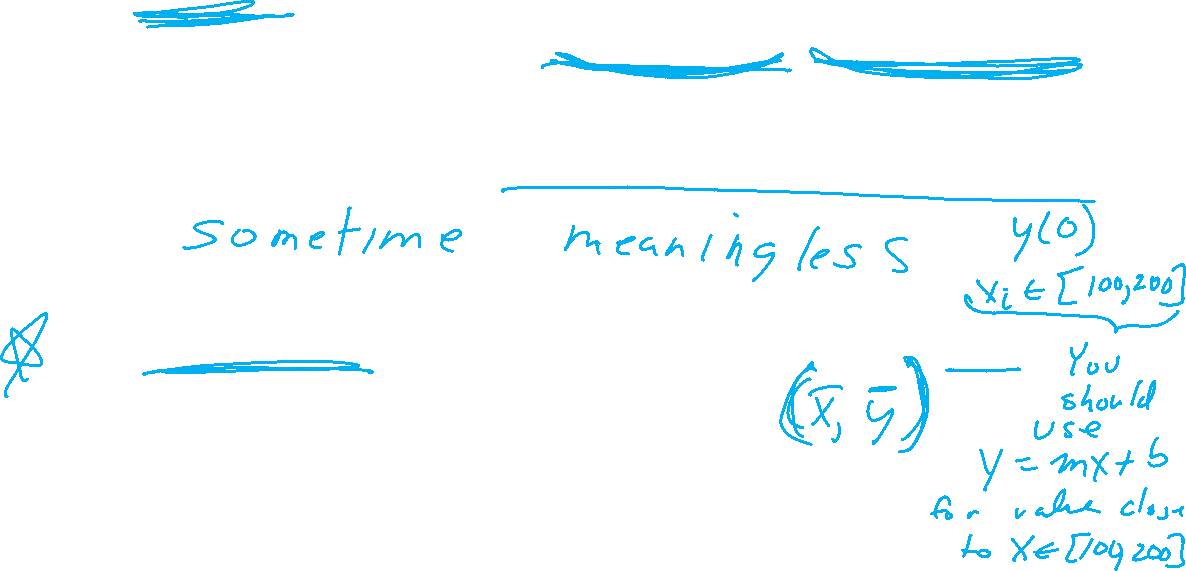 sometime meaningless y(0)
xi ∈ [100,200]
(x̄, ȳ) — You
should
use
y = mx + b
for value close
to x ∈ [100,200]